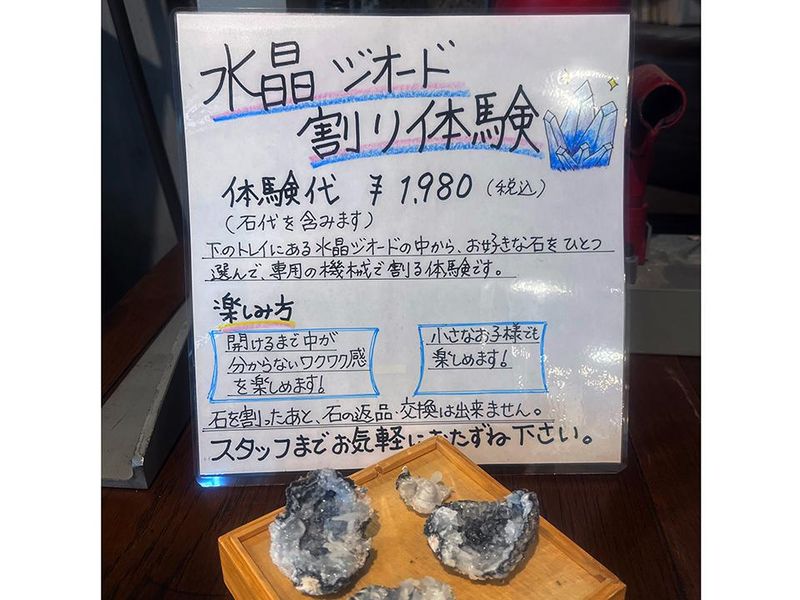 水晶 ジオード
割り体験
体験代 ¥1,980（税込）
（石代を含みます）
下のトレイにある水晶ジオードの中から、お好きな石をひとつ
選んで、専用の機械で割る体験です。
楽しみ方
開けるまで中が
分からないワクワク感
を楽しめます!
小さなお子様でも
楽しめます!
石を割ったあと、石の返品・交換は出来ません。
スタッフまでお気軽におたずね下さい。